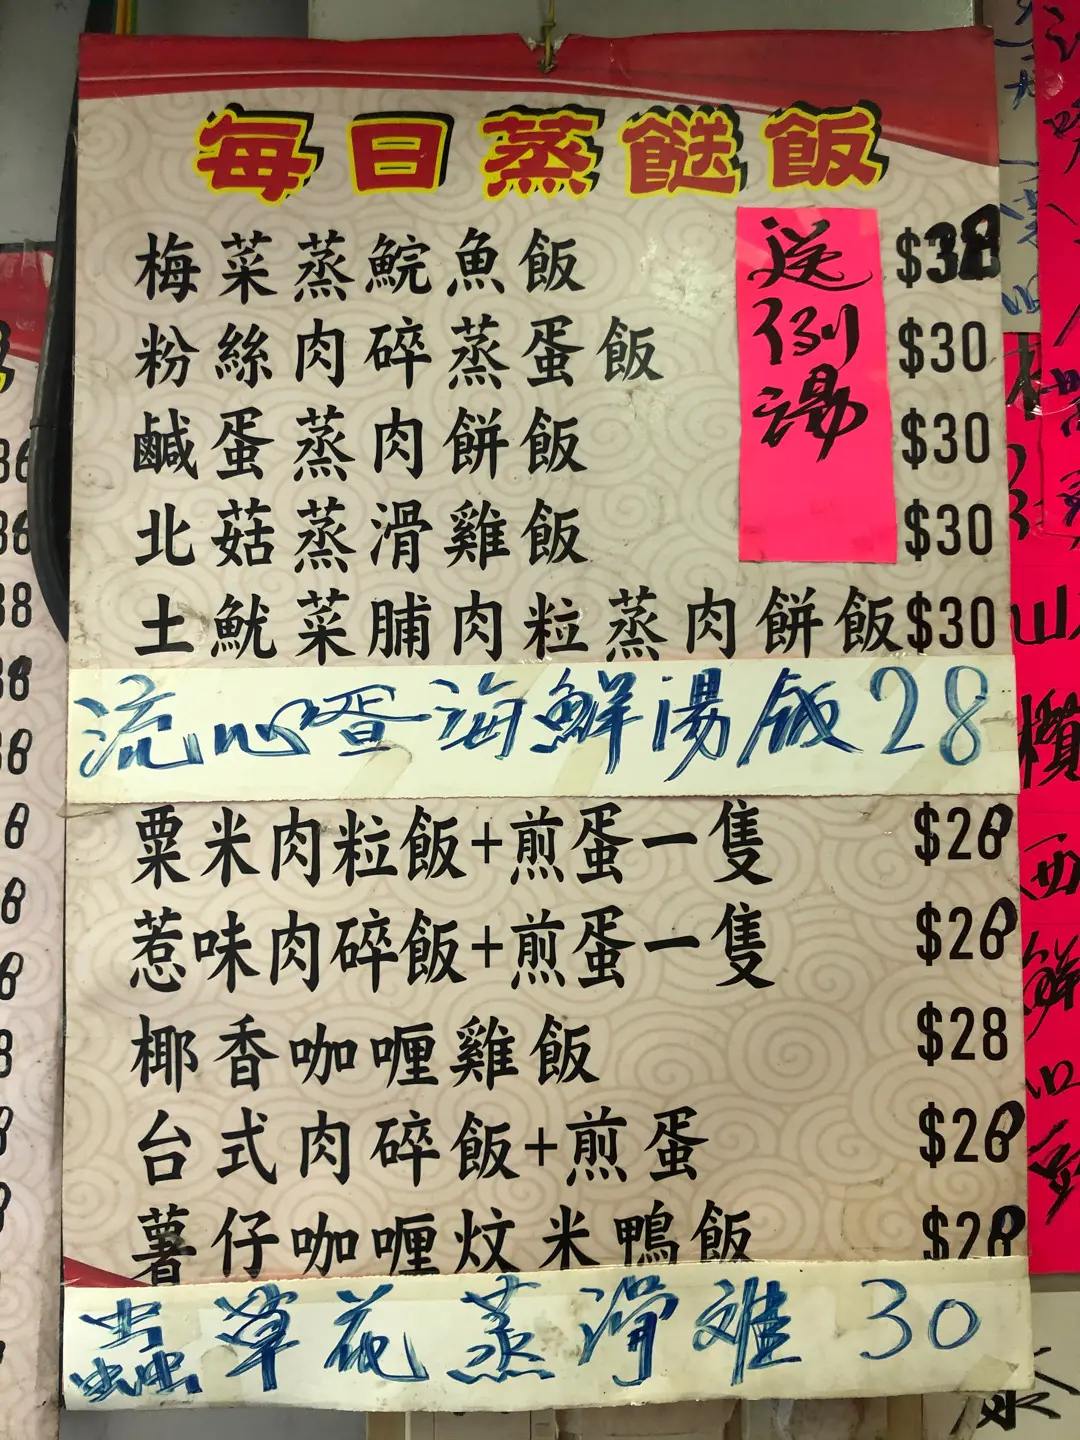 每日蒸餸飯
梅菜蒸鯇魚飯 $38
粉絲肉碎蒸蛋飯 $30
鹹蛋蒸肉餅飯 $30
北菇蒸滑雞飯 $30
土魷菜脯肉粒蒸肉餅飯 $30
送例湯
流心蛋海鮮湯飯 28
粟米肉粒飯+煎蛋一隻 $28
惹味肉碎飯+煎蛋一隻 $28
椰香咖喱雞飯 $28
台式肉碎飯+煎蛋 $28
薯仔咖喱炆米鴨飯 $28
蟲草花蒸滑雞 30